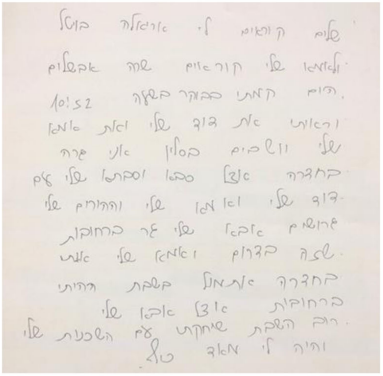 שלום קוראים לי אריאלה בוטל
ולאמא שלי קוראים שרה אבשלום
היום קמתי בבוקר בשעה 10:52
וראיתי את דוד שלי ואת אמא
שלי יושבים בסלון אני גרה
בחדרה אצל סבא וסבתא שלי עם
דוד שלי ואמא שלי וההורים שלי
גרושים אבא שלי גר ברחובות
שזה בדרום ואמא שלי איתי
בחדרה אתמול בשבת הייתי
ברחובות אצל אבא שלי
רוב השבת שיחקתי עם השכנות שלי
והיה לי מאוד כיף.